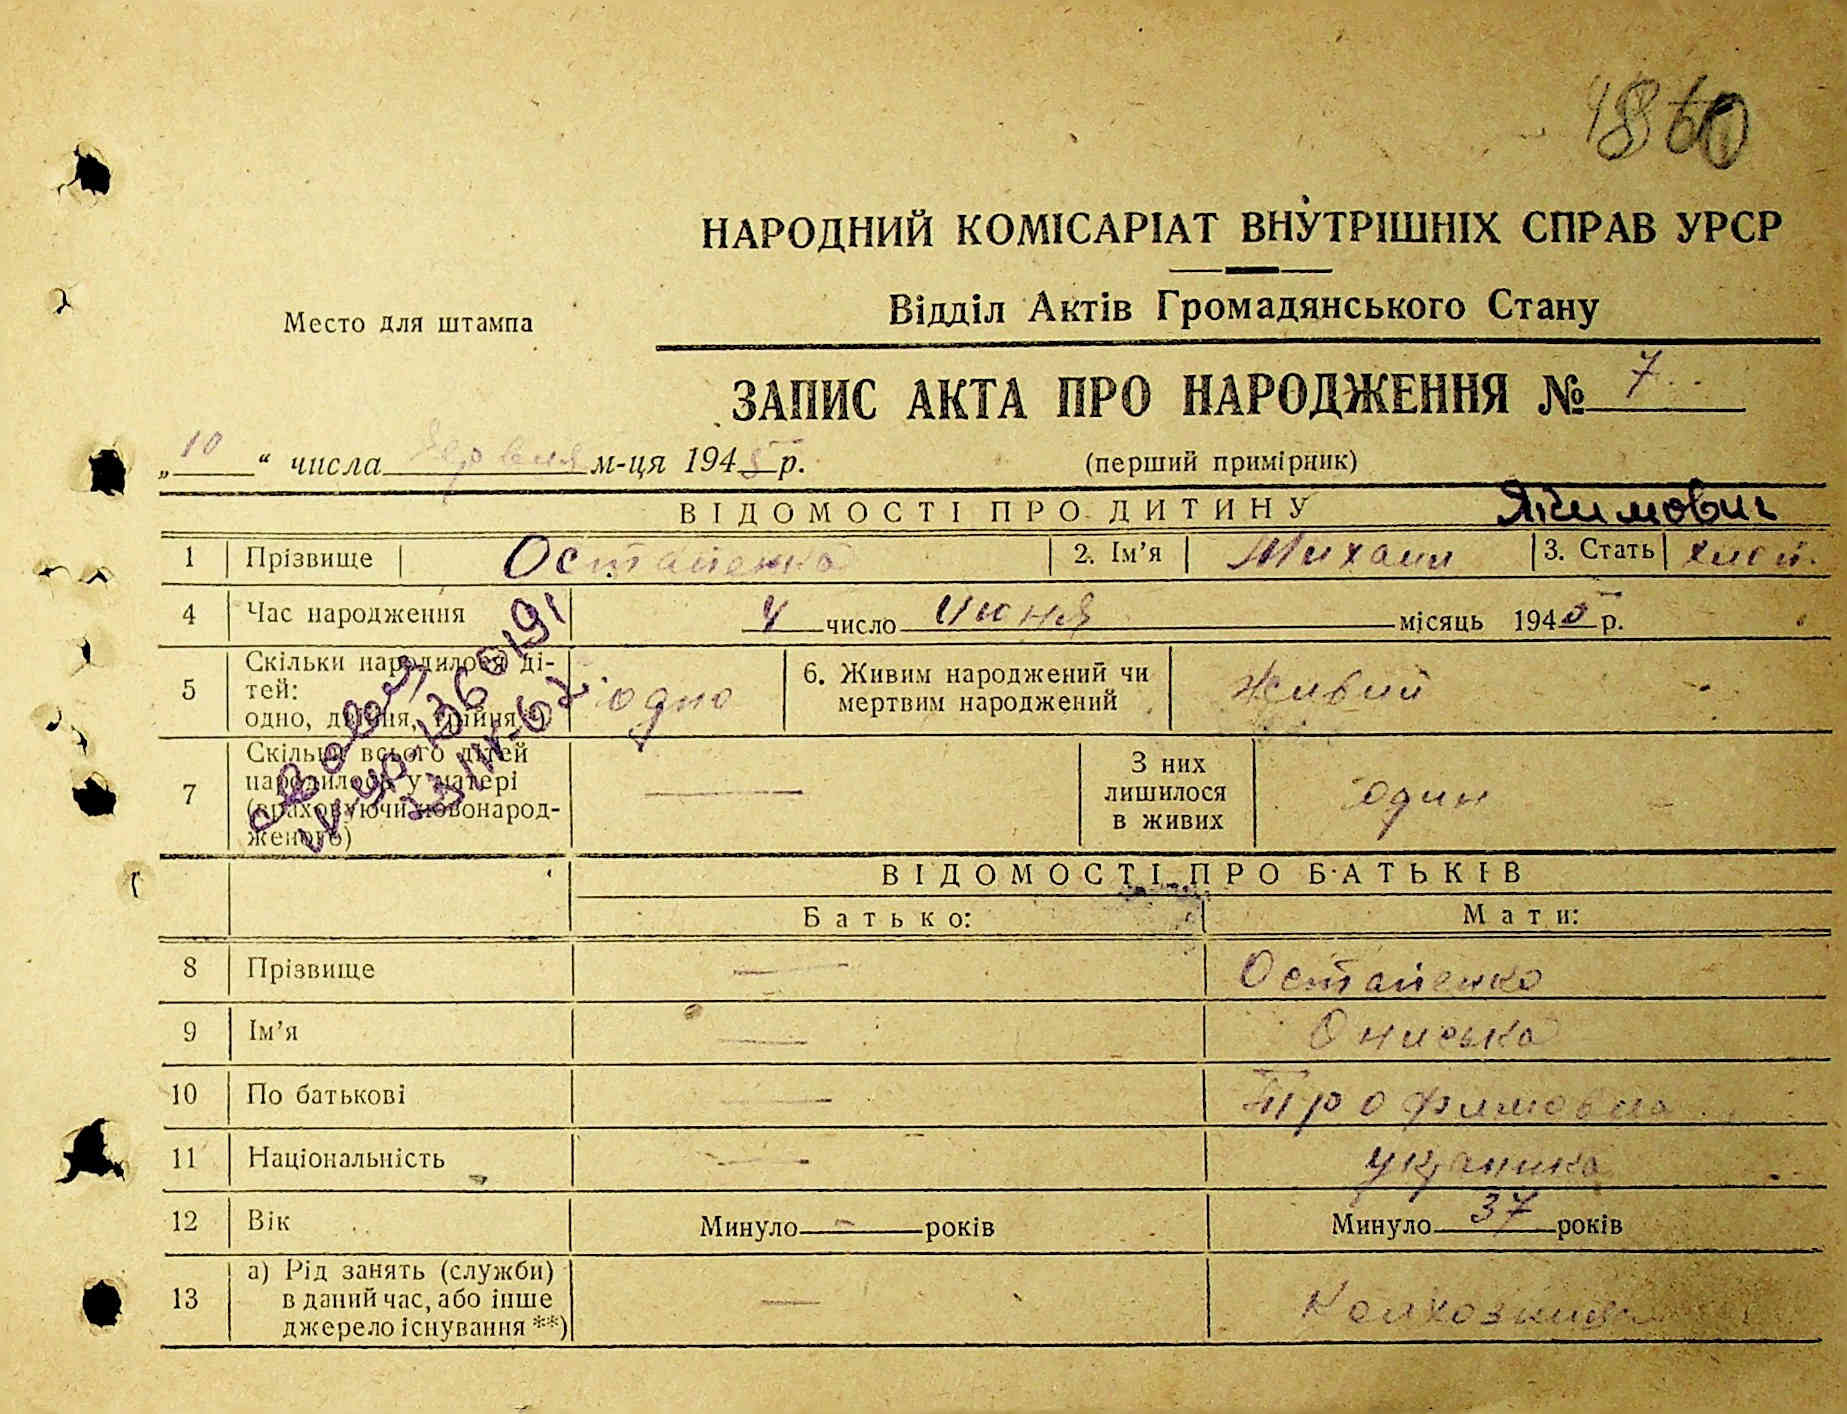 4860
НАРОДНИЙ КОМІСАРІАТ ВНУТРІШНІХ СПРАВ УРСР
Відділ Актів Громадянського Стану
Место для штампа
ЗАПИС АКТА ПРО НАРОДЖЕННЯ № 7
„10“ числа червня м-ця 1945 р.
(перший примірник)
ВІДОМОСТІ ПРО ДИТИНУ
Якимович
1 Прізвище Остапенко 2. Ім’я Михаил 3. Стать хлоп.
4 Час народження 4 число июня місяць 1945 р.
5 Скільки народилося ді-
тей:
одно, двійня, трійня
одно
6. Живим народжений чи
мертвим народжений
Живий
7 Скільки всього дітей
народилося у матері
(враховуючи новонарод-
женого)
—
З них
лишилося
в живих
один
ВІДОМОСТІ ПРО БАТЬКІВ
Батько: Мати:
8 Прізвище — Остапенко
9 Ім’я — Ониська
10 По батькові — Трофимовна
11 Національність — українка
12 Вік Минуло - років Минуло 37 років
13 а) Рід занять (служби)
в даний час, або інше
джерело існування **)
— Колхозница